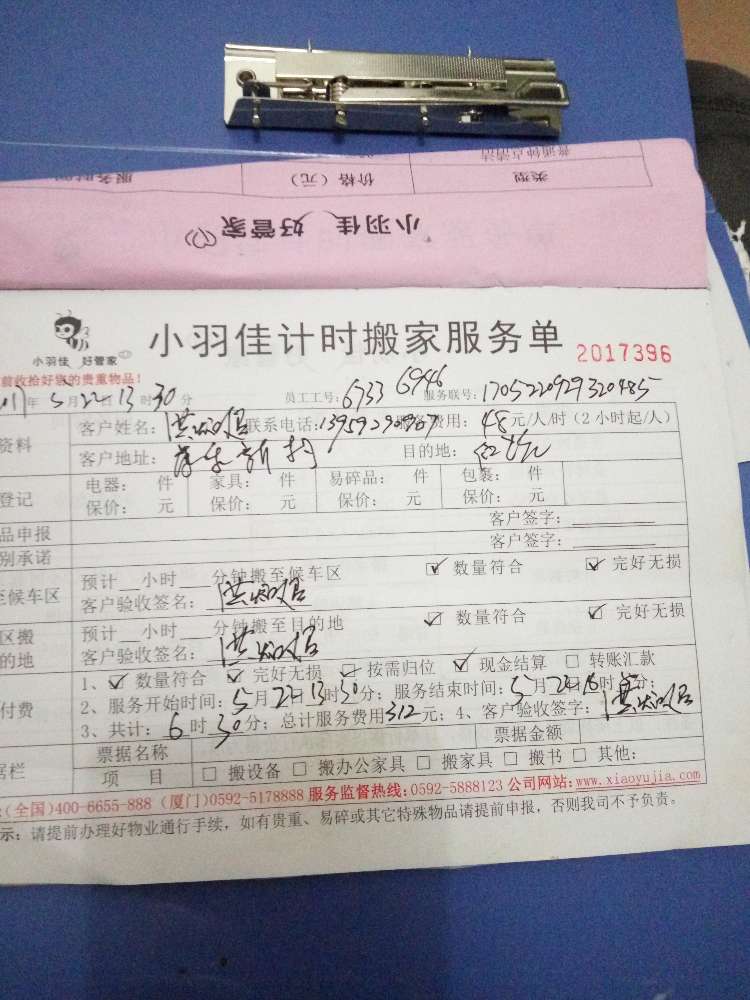 普通钟点清洁
类型
价格（元）
服务时间
小羽佳 好管家
小羽佳 好管家
小羽佳计时搬家服务单 2017396
前收拾好您的贵重物品!
年 5月22日13时30分 员工工号: 6733 6946 服务联号: 1705220929320485
资料
客户姓名: 联系电话: 服务费用: 48元/人/时（2小时起/人）
客户地址: 目的地:
登记
电器: 件 家具: 件 易碎品: 件 包裹: 件
保价: 元 保价: 元 保价: 元 保价: 元
品申报 客户签字:
别承诺 客户签字:
至候车区
预计__小时__分钟搬至候车区 ☑ 数量符合 ☑ 完好无损
客户验收签名:
区搬
的地
预计__小时__分钟搬至目的地 ☑ 数量符合 ☑ 完好无损
客户验收签名:
付费
1、☑ 数量符合 ☑ 完好无损 ☑ 按需归位 ☑ 现金结算 □ 转账汇款
2、服务开始时间: 5月22日13时30分; 服务结束时间: 5月
3、共计: 6时30分; 总计服务费用312元; 4、客户验收签字:
据栏
票据名称 票据金额
项 目 □ 搬设备 □ 搬办公家具 □ 搬家具 □ 搬书 □ 其他:
:(全国)400-6655-888 (厦门)0592-5178888 服务监督热线:0592-5888123 公司网站:www.xiaoyujia.com
示: 请提前办理好物业通行手续，如有贵重、易碎或其它特殊物品请提前申报，否则我司不予负责。